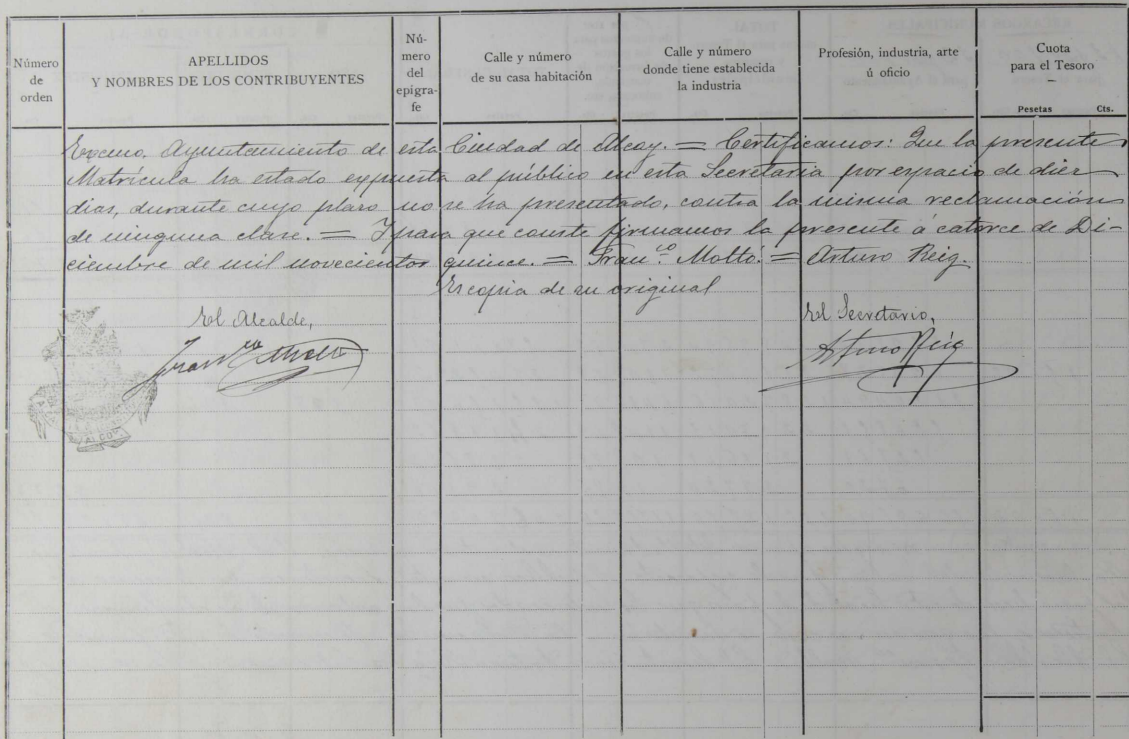 Número de orden
APELLIDOS
Y NOMBRES DE LOS CONTRIBUYENTES
Nú-
mero
del
epígra-
fe
Calle y número
de su casa habitación
Calle y número
donde tiene establecida
la industria
Profesión, industria, arte
ú oficio
Cuota
para el Tesoro
Pesetas Cts.
Excmo. Ayuntamiento de esta Ciudad de Alcoy. = Certificamos: Que la presente
Matrícula ha estado expuesta al público en esta Secretaria por espacio de diez
dias, durante cuyo plazo no se ha presentado, contra la misma reclamación
de ninguna clase. = Y para que conste firmamos la presente á catorce de Di-
ciembre de mil novecientos quince. = Fran.co Moltó. = Arturo Reig.
Es copia de su original
El Alcalde,
El Secretario,
Franco Moltó
Arturo Reig
ALCOY